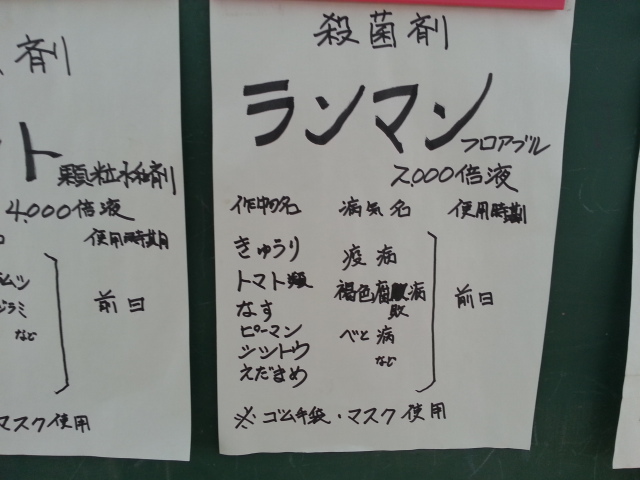 剤
ト
顆粒水和剤
4,000倍液
使用時期
前日
など
マスク使用
殺菌剤
ランマン
フロアブル
2,000倍液
作物名 病気名 使用時期
きゅうり 疫病
トマト類 褐色腐敗病
なす
前日
ピーマン べと病
シシトウ など
えだまめ
※ゴム手袋・マスク使用